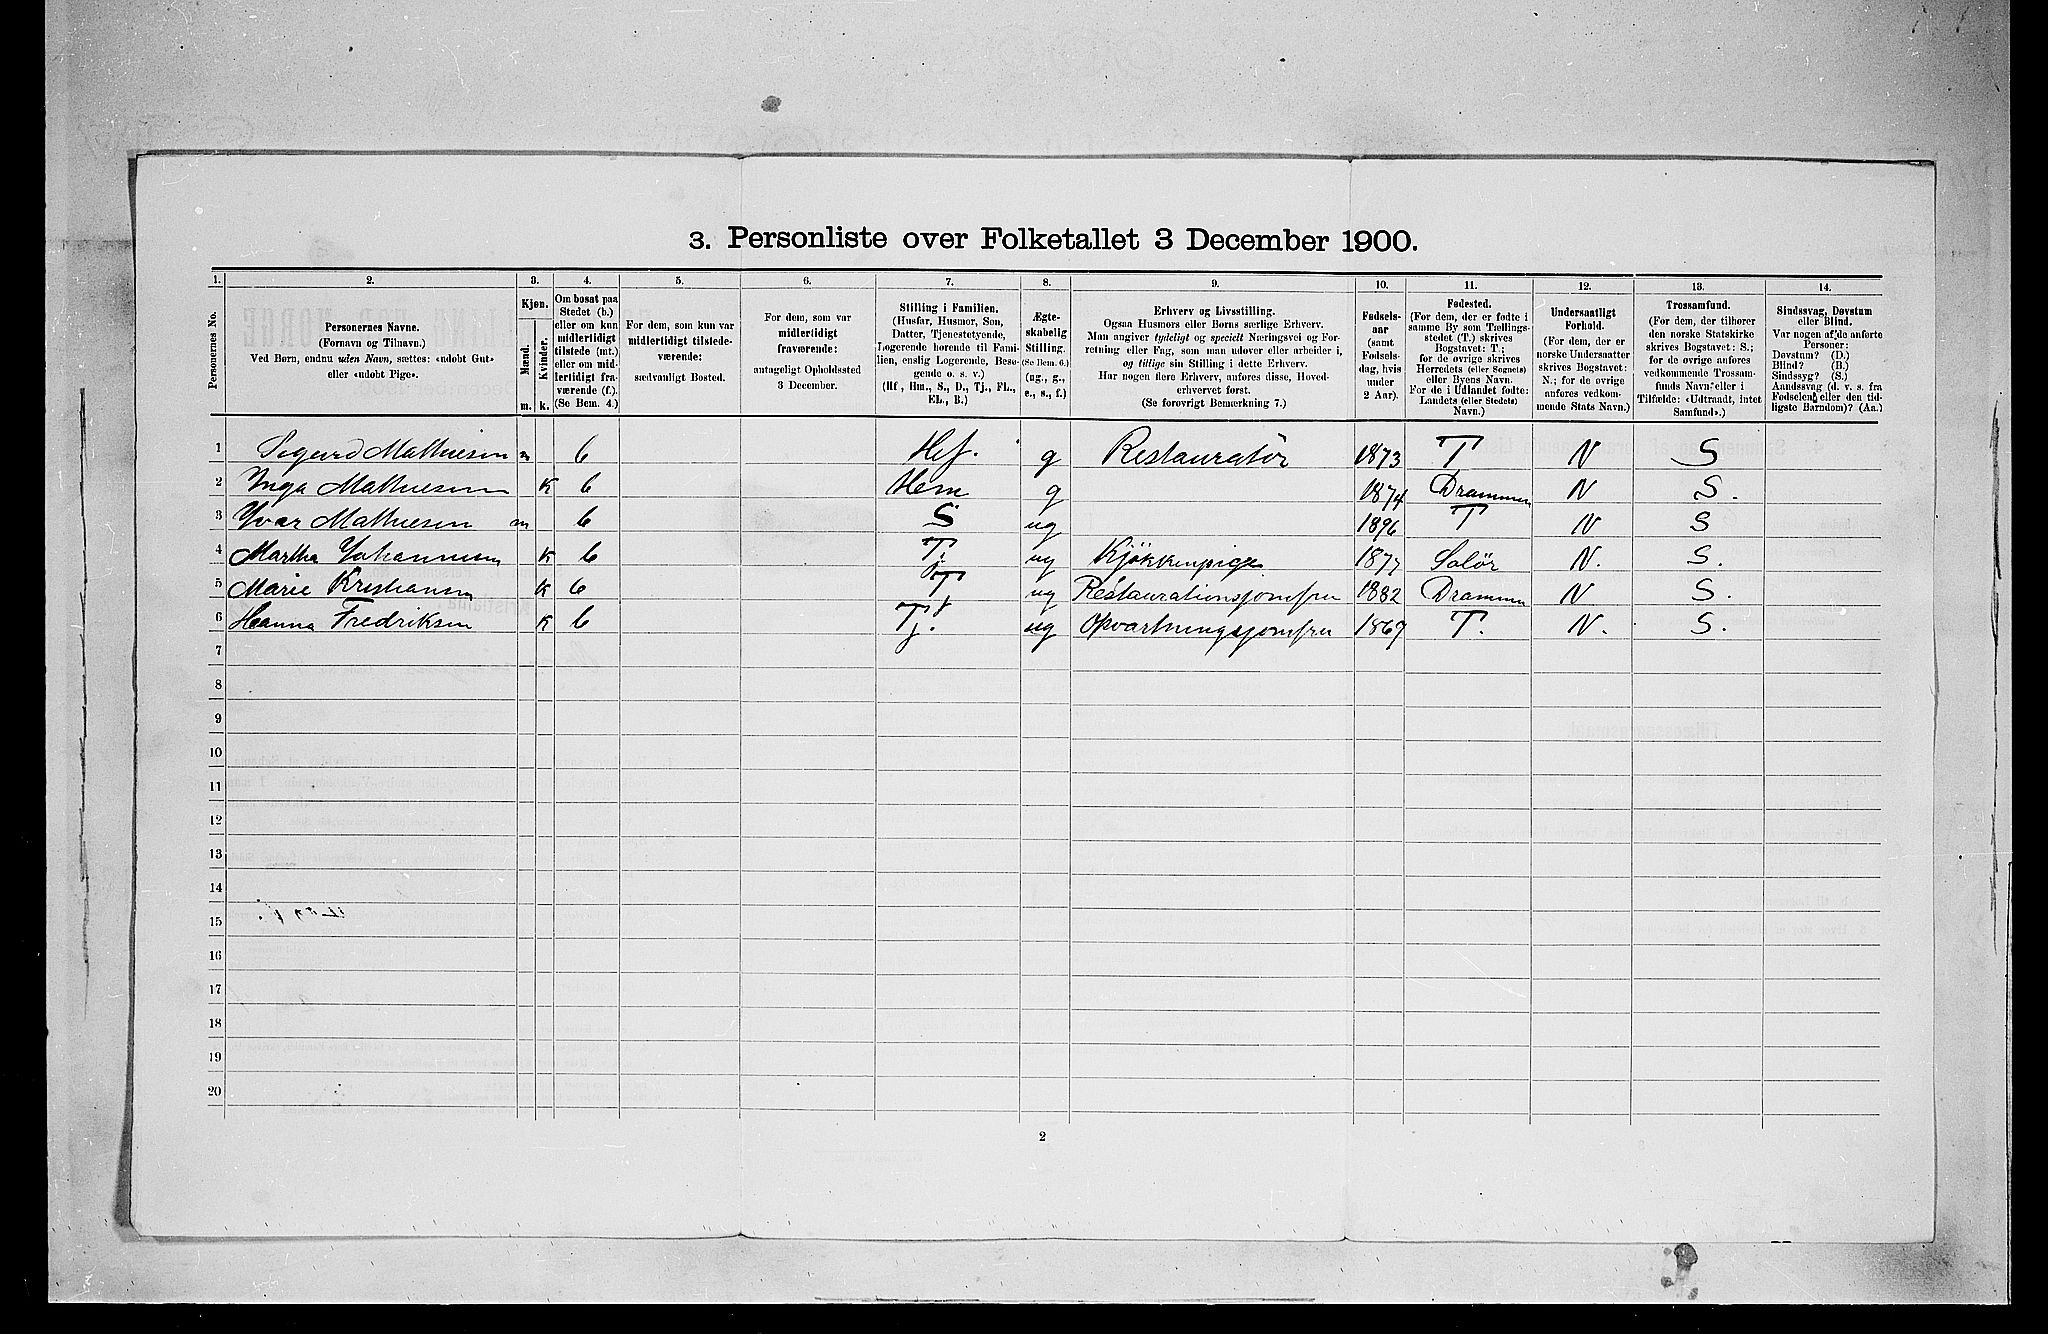 3. Personliste over Folketallet 3 December 1900.
1. 2. 3. 4. 5. 6. 7. 8. 9. 10. 11. 12. 13. 14.
Personernes No.
Personernes Navne.
(Fornavn og Tilnavn.)
Ved Børn, endnu uden Navn, sættes: «udøbt Gut»
eller «udøbt Pige».
Kjøn.
Mænd.
Kvinder.
m. k.
Om bosat paa
Stedet (b.)
eller om kun
midlertidigt
tilstede (mt.)
eller om mid-
lertidigt fra-
værende (f.).
(Se Bem. 4.)
For dem, som kun var
midlertidigt tilstede-
værende:
sædvanligt Bosted.
For dem, som var
midlertidigt
fraværende:
antageligt Opholdssted
3 December.
Stilling i Familien.
(Husfar, Husmor, Søn,
Datter, Tjenestetyende,
Logerende hørende til Fami-
lien, enslig Logerende, Besø-
gende o. s. v.)
(Hf., Hm., S., D., Tj., FL.,
EL., B.)
Ægte-
skabelig
Stilling.
(Se Bem. 6.)
(ug., g.,
e., s., f.)
Erhverv og Livsstilling.
Ogsaa Husmors eller Børns særlige Erhverv.
Man angiver tydeligt og specielt Næringsvei og For-
retning eller Fag, som man udøver eller arbeider i,
og tillige sin Stilling i dette Erhverv.
Har nogen flere Erhverv, anføres disse, Hoved-
erhvervet først.
(Se forøvrigt Bemærkning 7.)
Fødsels-
aar
(samt
Fødsels-
dag, hvis
under
2 Aar).
Fødested.
(For dem, der er fødte i
samme By som Tællings-
stedet (T.) skrives
Bogstavet: T.;
for de øvrige skrives
Herredets (eller Sognets)
eller Byens Navn.
For de i Udlandet fødte:
Landets (eller Stedets)
Navn.)
Undersaatligt
Forhold.
(For dem, der er
norske Undersaatter
skrives Bogstavet:
N.; for de øvrige
anføres vedkom-
mende Stats Navn.)
Trossamfund.
(For dem, der tilhører
den norske Statskirke
skrives Bogstavet: S.;
for de øvrige anføres
vedkommende Trossam-
funds Navn eller i
Tilfælde: «Udtraadt, intet
Samfund».)
Sindssvag, Døvstum
eller Blind.
Var nogen af de anførte
Personer:
Døvstum? (D.)
Blind? (B.)
Sindssyg? (S.)
Aandssvag (d. v. s. fra
Fødselen eller den tid-
ligste Barndom)? (Aa.)
1 Sigurd Mathiesen m b Hf. g Restauratør 1873 T N S
2 Inga Mathiesen K b Hm g 1874 Drammen N S.
3 Yvar Mathiesen m b S ug 1896 T N S
4 Martha Johannesen K b Tj ug Kjøkkenpige 1877 Solør N. S.
5 Marie Kristiansen K b Tj ug Restaurationsjomfru 1882 Drammen N S.
6 Hanna Fredriksen K b Tj. ug Opvartningsjomfru 1867 T. N. S.
7
8
9
10
11
12
13
14
15
16
17
18
19
20
2